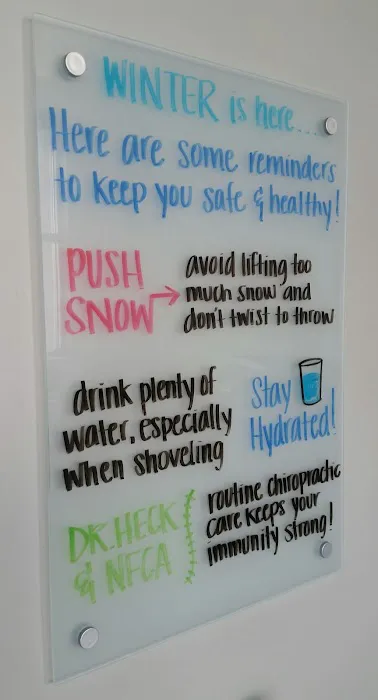 WINTER is here...
Here are some reminders
to keep you safe & healthy!
PUSH
SNOW
avoid lifting too
much snow and
don't twist to throw
drink plenty of
water, especially
when shoveling
Stay
Hydrated!
DR. HECK
& NFCA
routine chiropractic
care keeps your
immunity strong!